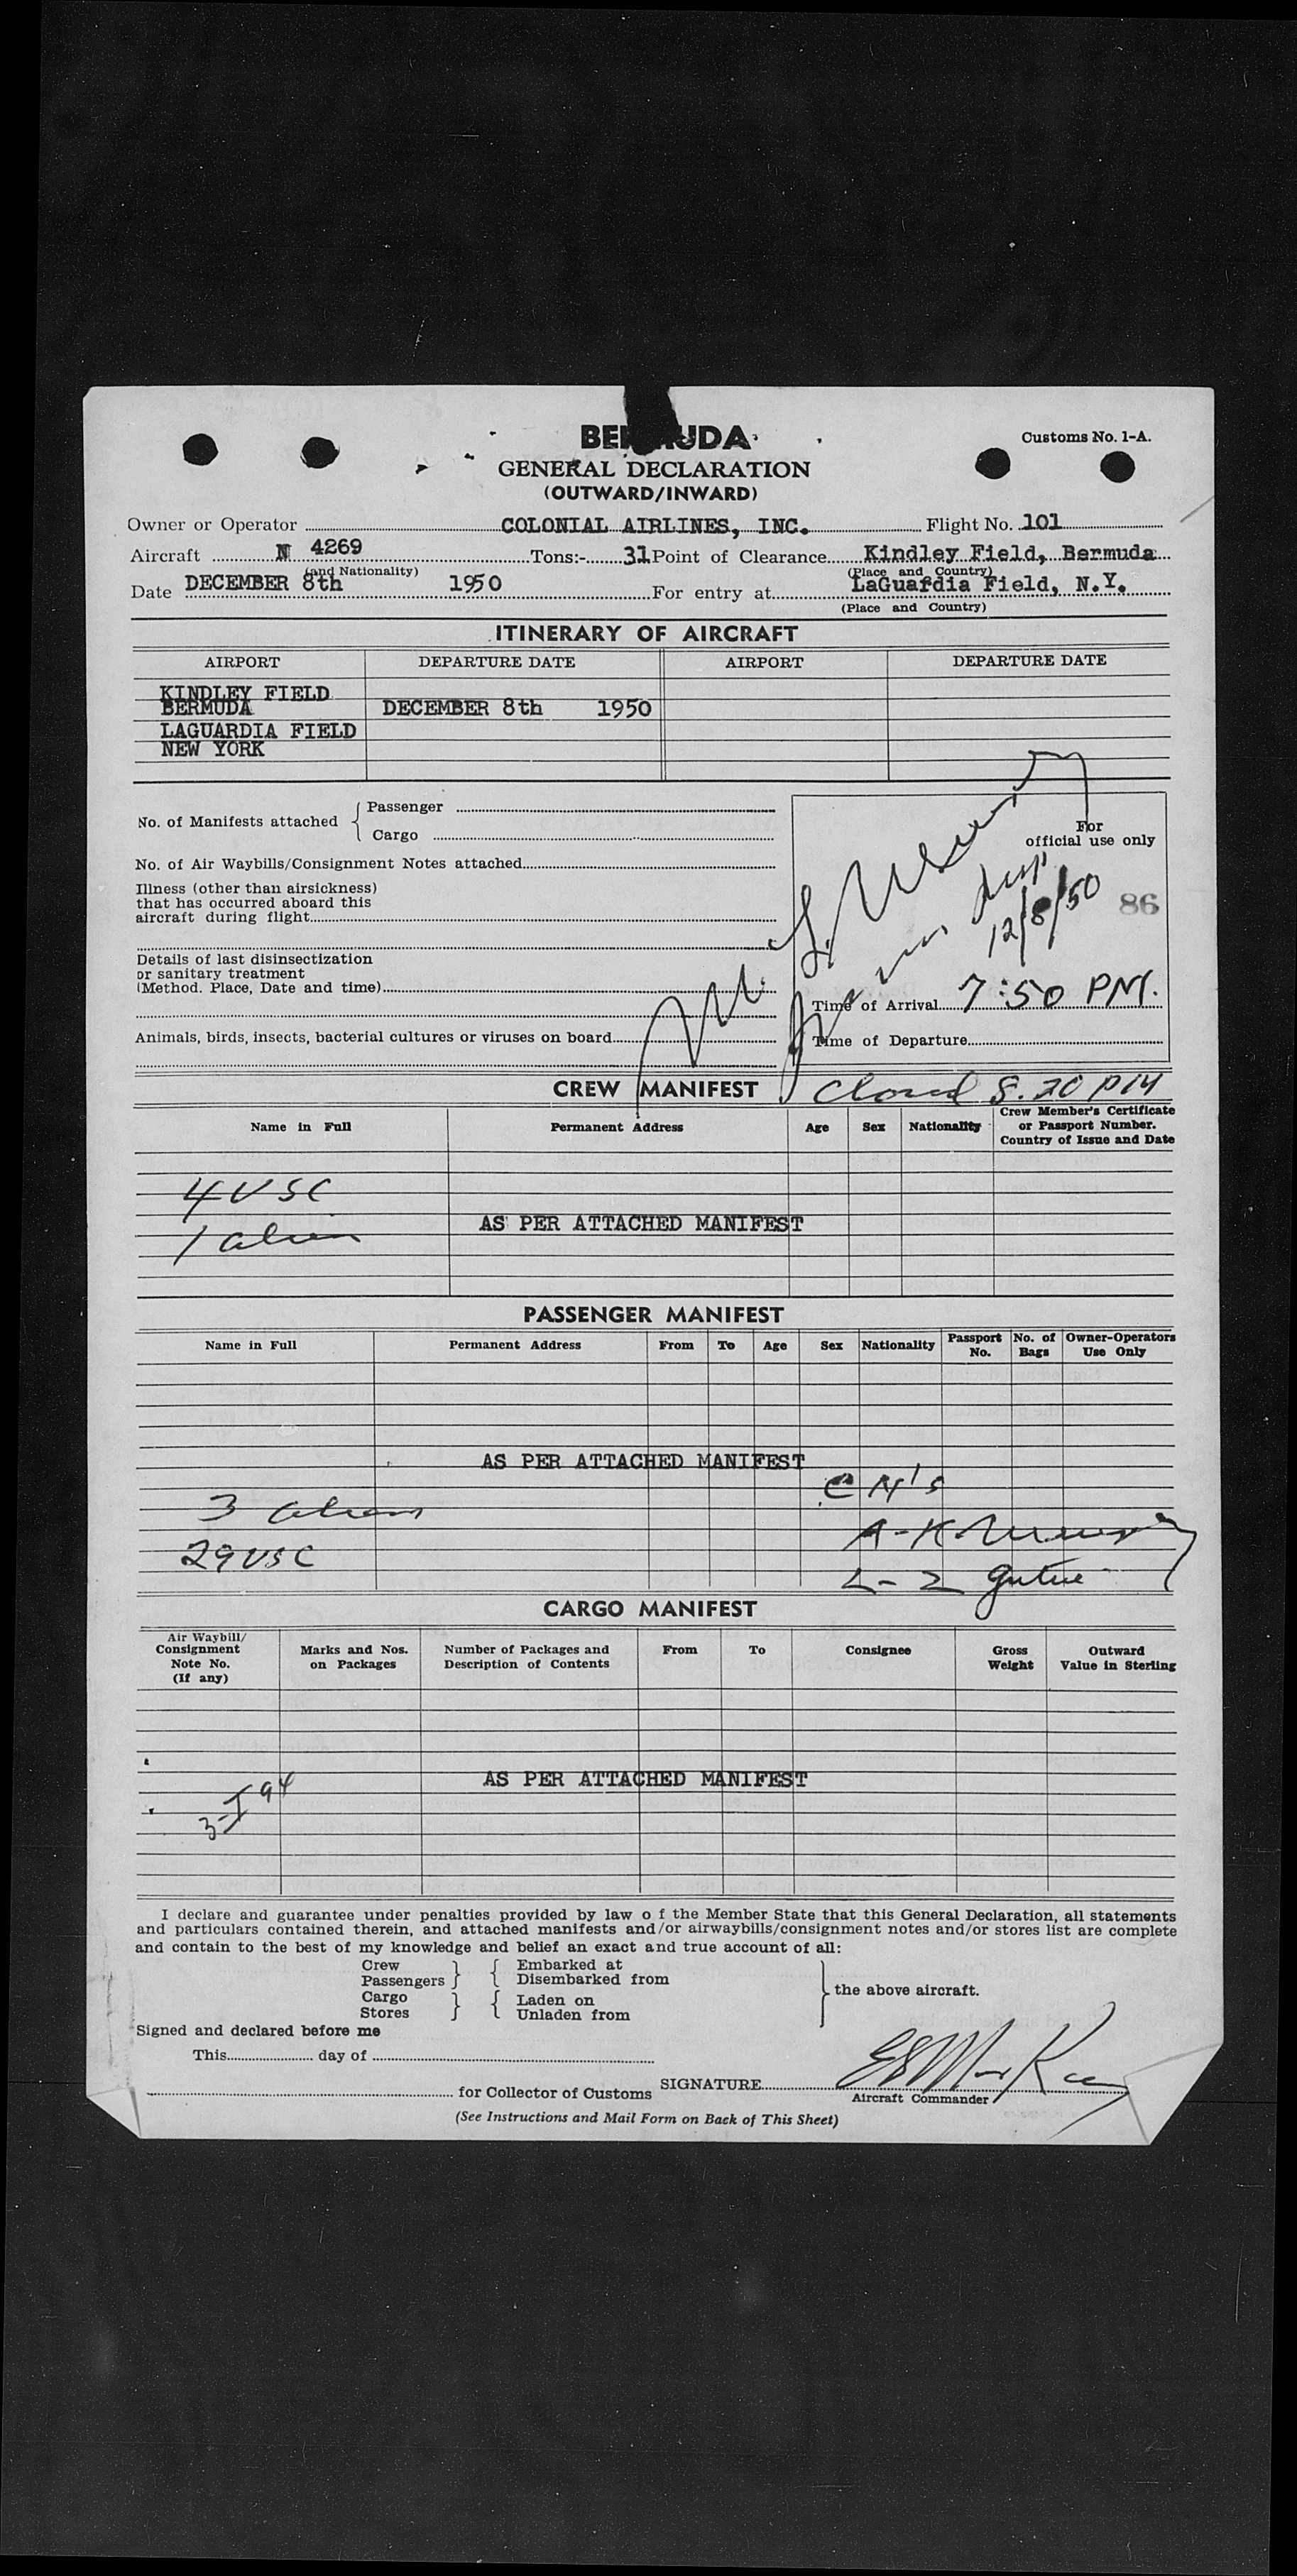 BERMUDA
Customs No. 1-A.
GENERAL DECLARATION
(OUTWARD/INWARD)
Owner or Operator COLONIAL AIRLINES, INC. Flight No. 101
Aircraft N 4269 Tons:- 31 Point of Clearance Kindley Field, Bermuda
(and Nationality) (Place and Country)
Date DECEMBER 8th 1950 For entry at LaGuardia Field, N.Y.
(Place and Country)
ITINERARY OF AIRCRAFT
AIRPORT DEPARTURE DATE AIRPORT DEPARTURE DATE
KINDLEY FIELD
BERMUDA DECEMBER 8th 1950
LAGUARDIA FIELD
NEW YORK
No. of Manifests attached Passenger
Cargo
For
official use only
No. of Air Waybills/Consignment Notes attached
Illness (other than airsickness)
that has occurred aboard this
aircraft during flight
12/8/50 86
Details of last disinsectization
or sanitary treatment
(Method. Place, Date and time)
Time of Arrival 7:50 PM.
Animals, birds, insects, bacterial cultures or viruses on board
Time of Departure
CREW MANIFEST Closed 8.20 PM
Name in Full Permanent Address Age Sex Nationality Crew Member's Certificate
or Passport Number.
Country of Issue and Date
4 USC
AS PER ATTACHED MANIFEST
1 alien
PASSENGER MANIFEST
Name in Full Permanent Address From To Age Sex Nationality Passport No. No. of Bags Owner-Operators Use Only
AS PER ATTACHED MANIFEST
CN's
3 aliens
A-K
29 USC
L-Z
CARGO MANIFEST
Air Waybill/
Consignment
Note No.
(If any)
Marks and Nos.
on Packages
Number of Packages and
Description of Contents
From To Consignee
Gross
Weight
Outward
Value in Sterling
AS PER ATTACHED MANIFEST
3-I 94
I declare and guarantee under penalties provided by law o f the Member State that this General Declaration, all statements
and particulars contained therein, and attached manifests and/or airwaybills/consignment notes and/or stores list are complete
and contain to the best of my knowledge and belief an exact and true account of all:
Crew Embarked at
Passengers Disembarked from
the above aircraft.
Cargo Laden on
Stores Unladen from
Signed and declared before me
This day of
for Collector of Customs SIGNATURE
Aircraft Commander
(See Instructions and Mail Form on Back of This Sheet)